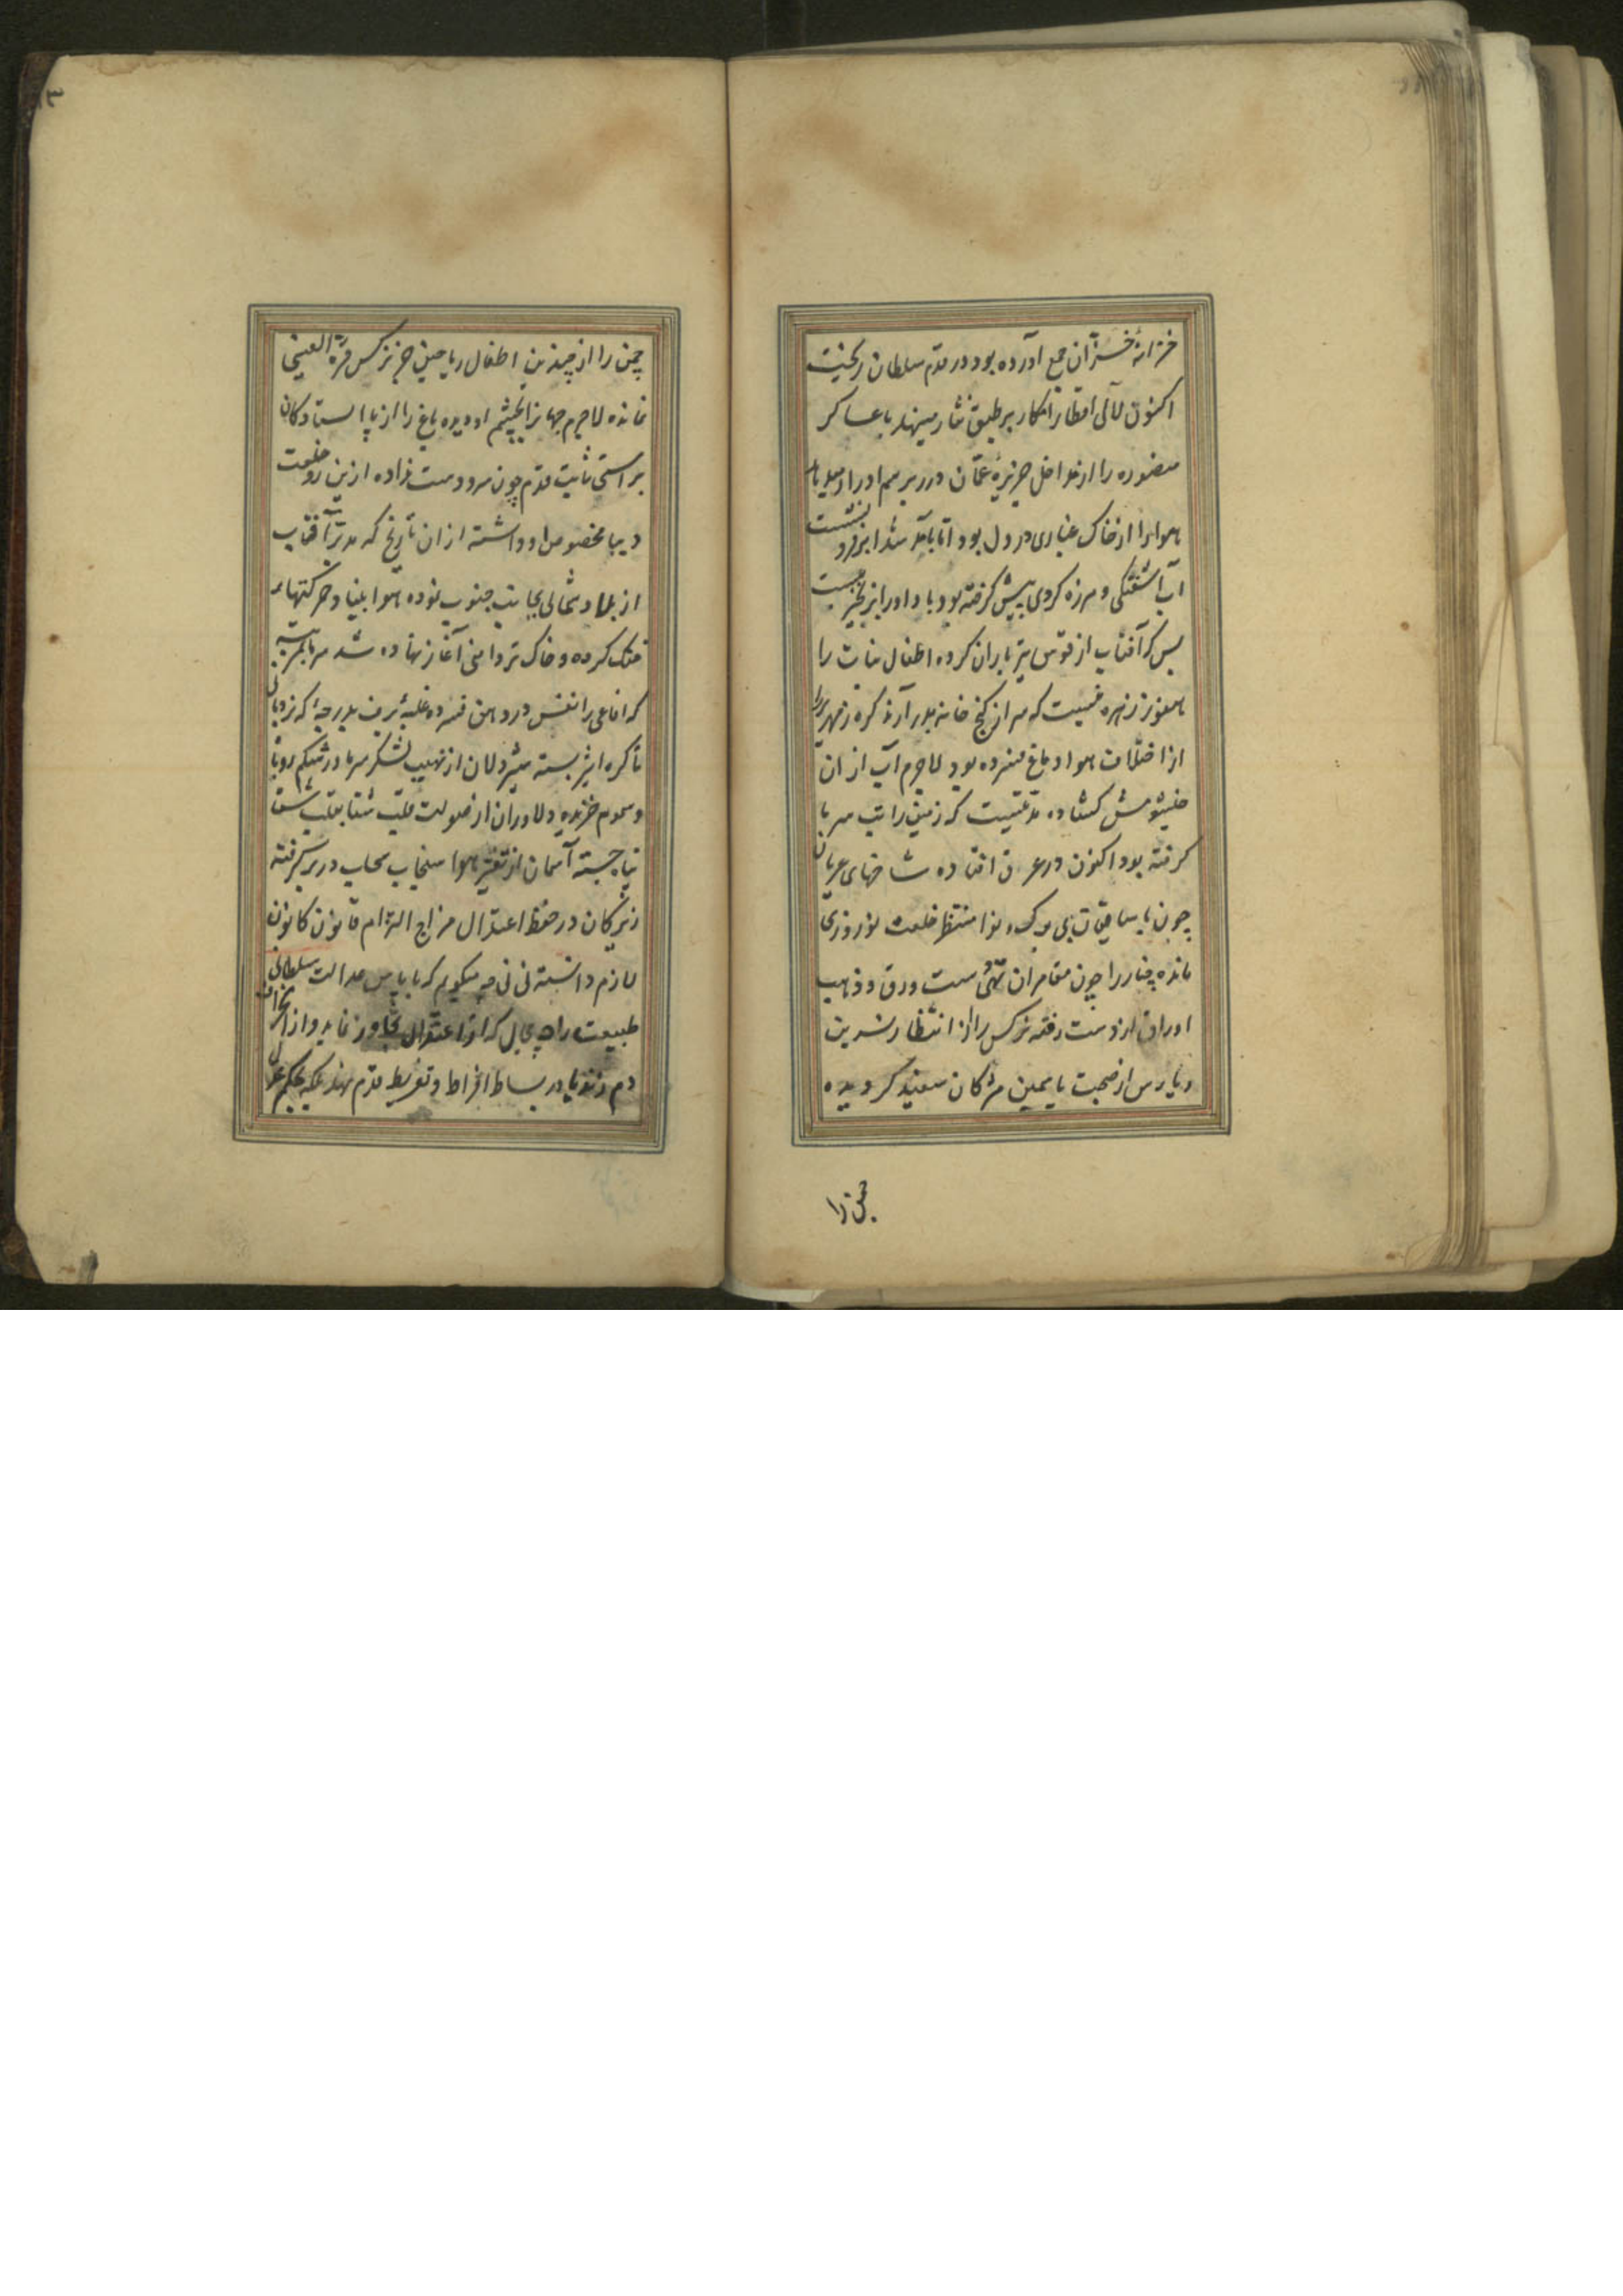 خزانهٔ خزان جمع آورده بود در قدم سلطان ریخت
اکنون لآلی امطار افکار بر طبق نثار مینهد با عساکر
منصوره را از مداخل جزیرهٔ عمان درر برسم ادرار
هوا را از خاک غباری در دل بود اما بآمد شد ابر فرو نشست
آب آشفتگی و هرزه کردی پیش گرفته بود باد او را بزنجیر بست
بس که آفتاب از قوس تیر باران کرده اطفال نبات را
هنوز زهره نیست که سر از کنج خانه بدر آرند کره زمهریر
از اختلاف هوا دماغ فسرده بود لاجرم آب از آن
خیشومش کشاده مدتیست که زمین را تب سرما
گرفته بود اکنون در عرق افتاده شاخهای عریان
چون بی برک و نوا منتظر خلعت نوروزی
مانده چنار را چون مقامران تهی دست ورق و ذهب
اوراق از دست رفته نرکس را از انتظار نسرین
از صحبت یاسمین مژکان سفید کردیده
چمن را
چمن را از چندین اطفال ریاحین جز نرکس قرة العینی
نمانده لاجرم بچشم او دیده باغ را از پا ایستادکان
براستی ثابت قدم چون سرو دست نداده ازین رو خلعت
دیبا مخصوص او داشته از ان تاریخ که مدبر آفتاب
از بلاد شمالی بجانب جنوب نموده هوا بنیاد حرکتهاء
خنک کرده و خاک تردامنی آغاز نهاده شد سرما بمرتبه
که افاعی را نفس در دهن فسرده غلبهٔ برف بدرجه که نردبان
تا کره اثیر بسته شیردلان از نهیب لشکر سرما در شکم روباه
و سمور خزیده و دلاوران از صولت قلب شتا بقلب شتا
پناه جسته آسمان از تغیر هوا سنجاب سحاب در سر گرفته
زیرکان در حفظ اعتدال مزاج التزام قانون کانون
لازم دانسته نی نی چه میکویم که با پاس عدالت سلطانی
طبیعت را چه مجال که از اعتدال تجاوز نماید و از انحراف
دم زند یا در بساط افراط و تفریط قدم نهد بلکه بحکم عدل